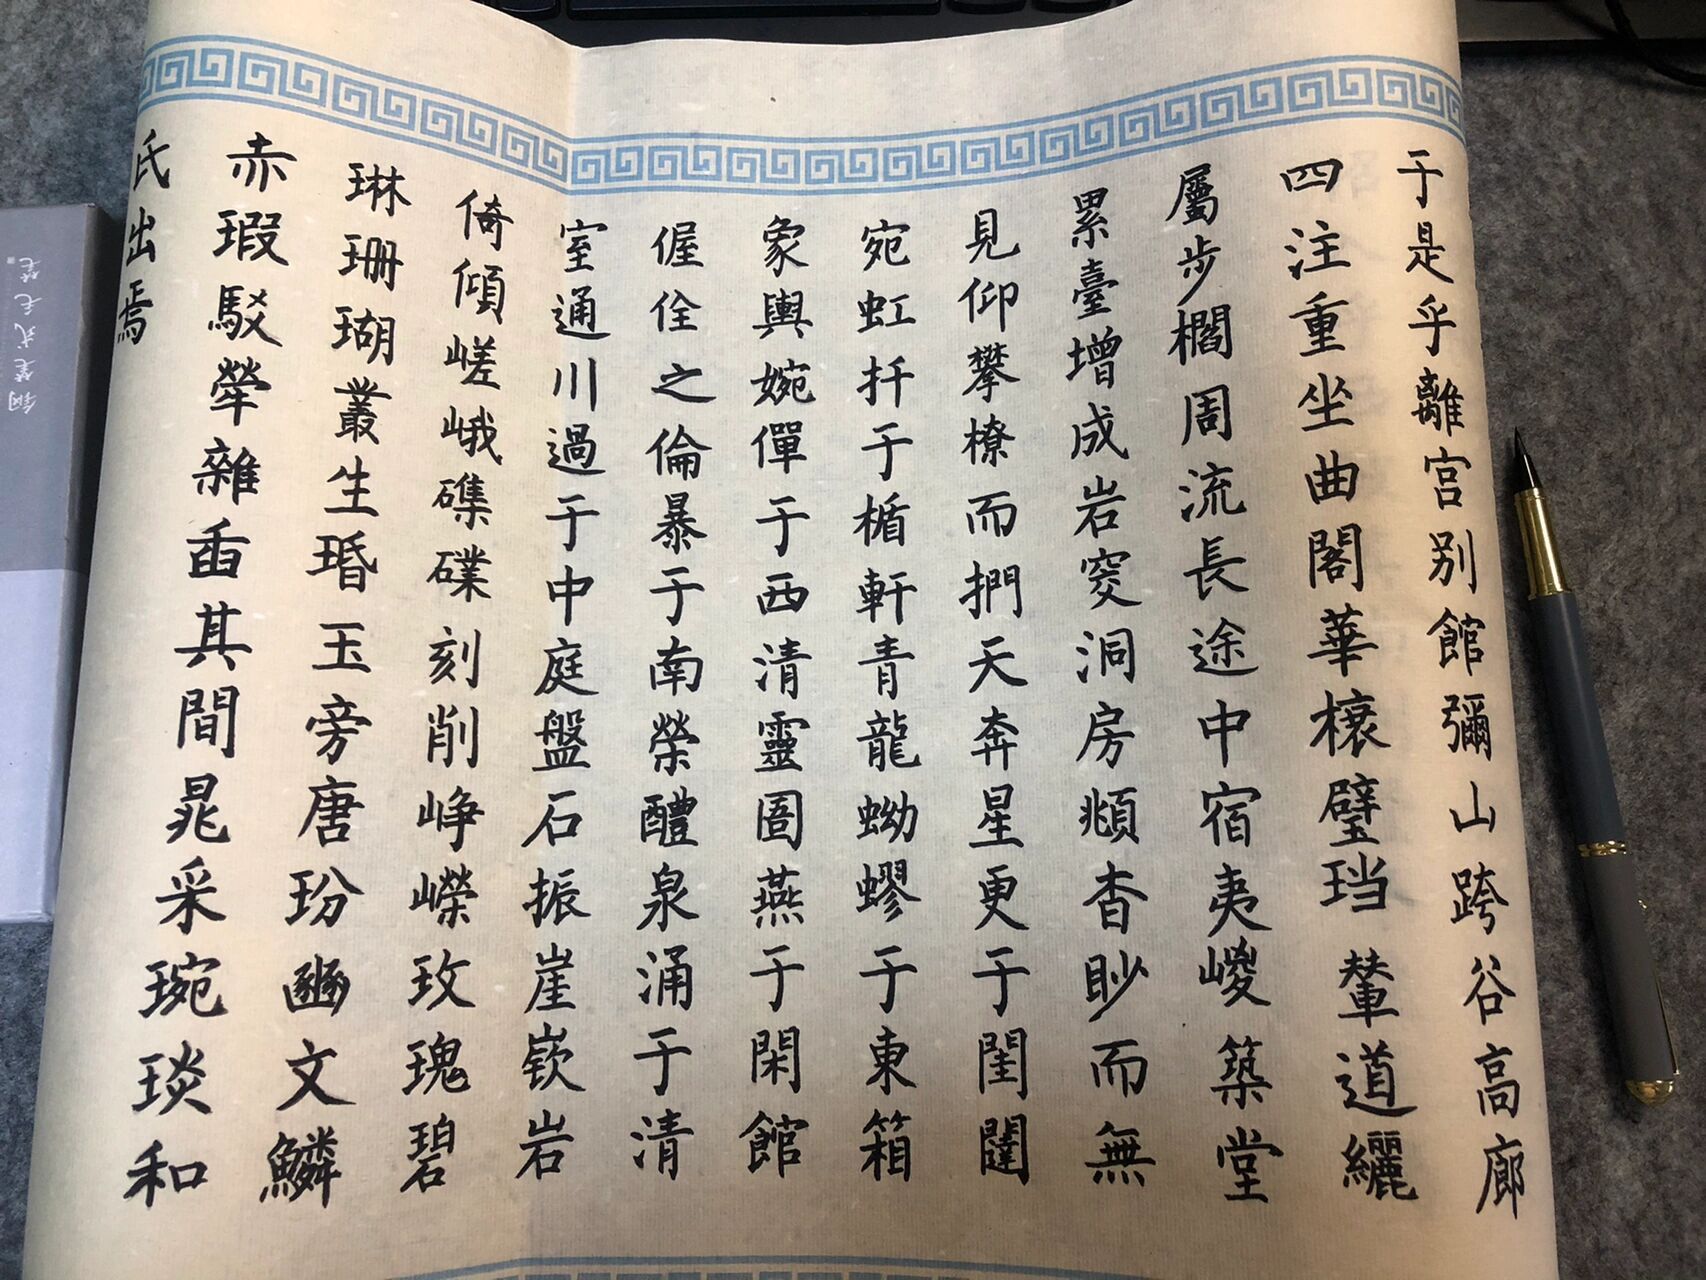 于是乎離宮别館彌山跨谷高廊
四注重坐曲閣華榱璧珰輦道纚
屬步櫩周流長途中宿夷嵕築堂
累臺增成岩窔洞房頫杳眇而無
見仰攀橑而捫天奔星更于閨闥
宛虹扦于楯軒青龍蚴蟉于東箱
象輿婉僤于西清靈圄燕于閑館
偓佺之倫暴于南榮醴泉涌于清
室通川過于中庭盤石振崖嵚岩
倚傾嵯峨磼礏刻削崢嶸玫瑰碧
琳珊瑚叢生瑉玉旁唐玢豳文鱗
赤瑕駁犖雜臿其間晁采琬琰和
氏出焉
鋼筆式毛筆